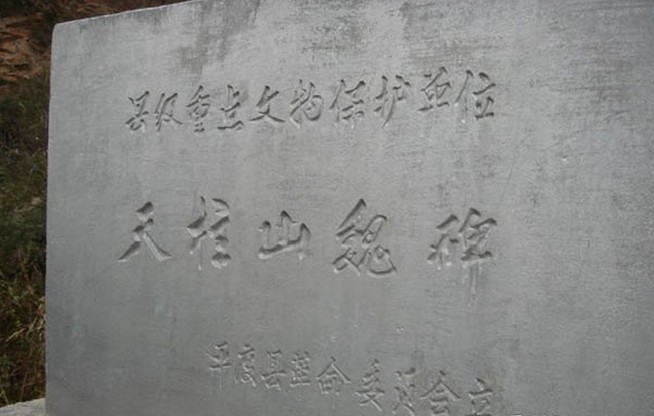 县级重点文物保护单位
天柱山魏碑
平度县革命委员会立